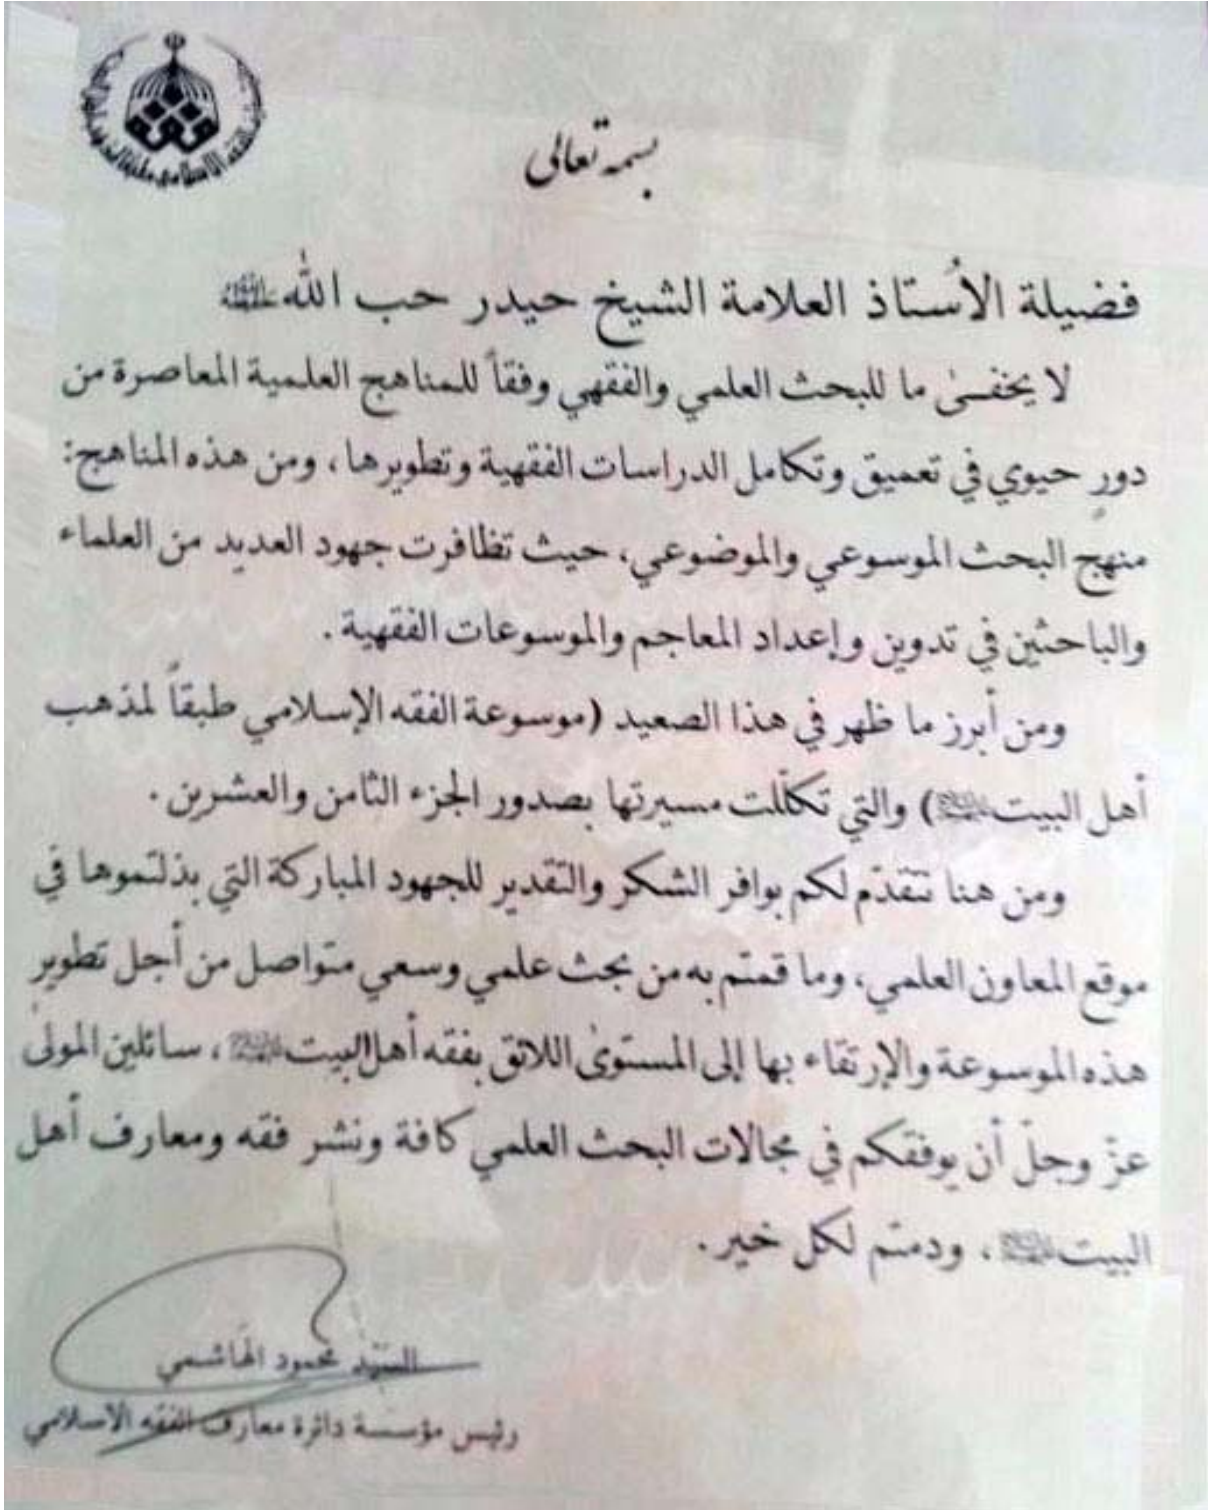 بسمه تعالى
فضيلة الأُستاذ العلامة الشيخ حيدر حب الله
لا يخفىٰ ما للبحث العلمي والفقهي وفقاً للمناهج العلمية المعاصرة من
دورٍ حيوي في تعميق وتكامل الدراسات الفقهية وتطويرها، ومن هذه المناهج:
منهج البحث الموسوعي والموضوعي، حيث تظافرت جهود العديد من العلماء
والباحثين في تدوين وإعداد المعاجم والموسوعات الفقهية.
ومن أبرز ما ظهر في هذا الصعيد (موسوعة الفقه الإسلامي طبقاً لمذهب
أهل البيت) والتي تكلّلت مسيرتها بصدور الجزء الثامن والعشرين.
ومن هنا نتقدّم لكم بوافر الشكر والتقدير للجهود المباركة التي بذلتموها في
موقع المعاون العلمي، وما قمتم به من بحث علمي وسعي متواصل من أجل تطوير
هذه الموسوعة والإرتقاء بها إلى المستوىٰ اللائق بفقه أهل البيت، سائلين المولىٰ
عزّ وجلّ أن يوفقكم في مجالات البحث العلمي كافة ونشر فقه ومعارف أهل
البيت، ودمتم لكل خير.
السيّد محمود الهاشمي
رئيس مؤسسة دائرة معارف الفقه الاسلامي